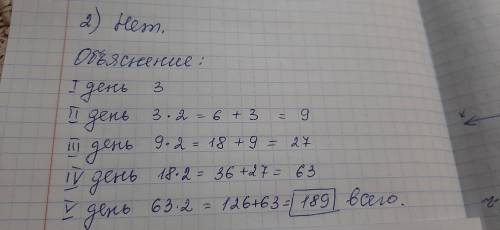 2) Нет.
Объяснение:
I день 3
II день 3·2 = 6 + 3 = 9
III день 9·2 = 18 + 9 = 27
IV день 18·2 = 36 + 27 = 63
V день 63·2 = 126 + 63 = 189 всего.